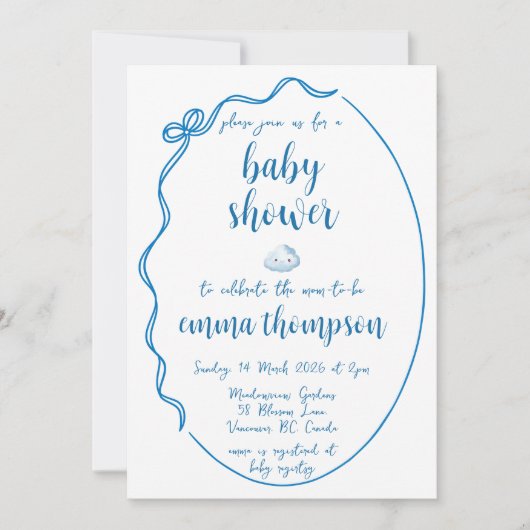 please join us for a
baby
shower
to celebrate the mom-to-be
emma thompson
Sunday, 14 March 2026 at 2pm
Meadowview Gardens
58 Blossom Lane,
Vancouver, BC, Canada
emma is registered at
baby regirtsy